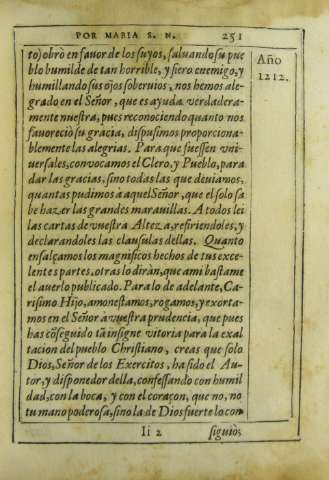 POR MARIA S. N. 251
to) obrò en fauor de los suyos, saluando su pue
blo humilde de tan horrible, y fiero enemigo, y
humillando sus ojos soberuios, nos hemos ale-
grado en el Señor, que es ayuda verdadera-
mente nuestra, pues reconociendo quanto nos
fauoreciò su gracia, dispusimos proporciona-
blemente las alegrias. Para que fuessen vni-
uersales, conuocamos el Clero, y Pueblo, para
dar las gracias, sino todas las que deuiamos,
quantas pudimos à aquel Señor, que el solo sa
be hazer las grandes marauillas. A todos lei
las cartas de vuestra Alteza, refiriendoles, y
declarandoles las clausulas dellas. Quanto
ensalçamos los magnificos hechos de tus exce-
lentes partes, otras lo diràn, que ami bastame
el auerlo publicado. Para lo de adelante, Ca-
rissimo Hijo, amonestamos, rogamos, y exorta-
mos en el Señor à vuestra prudencia, que pues
has cõseguido tã insigne vitoria para la exal
tacion del pueblo Christiano, creas que solo
Dios, Señor de los Exercitos, ha sido el Au-
tor, y disponedor della, confessando con humil
dad, con la boca, y con el coraçon, que no, no
tu mano poderosa, sino la de Dios fuerte lo con
Ii 2 siguiò:
Año
1212.